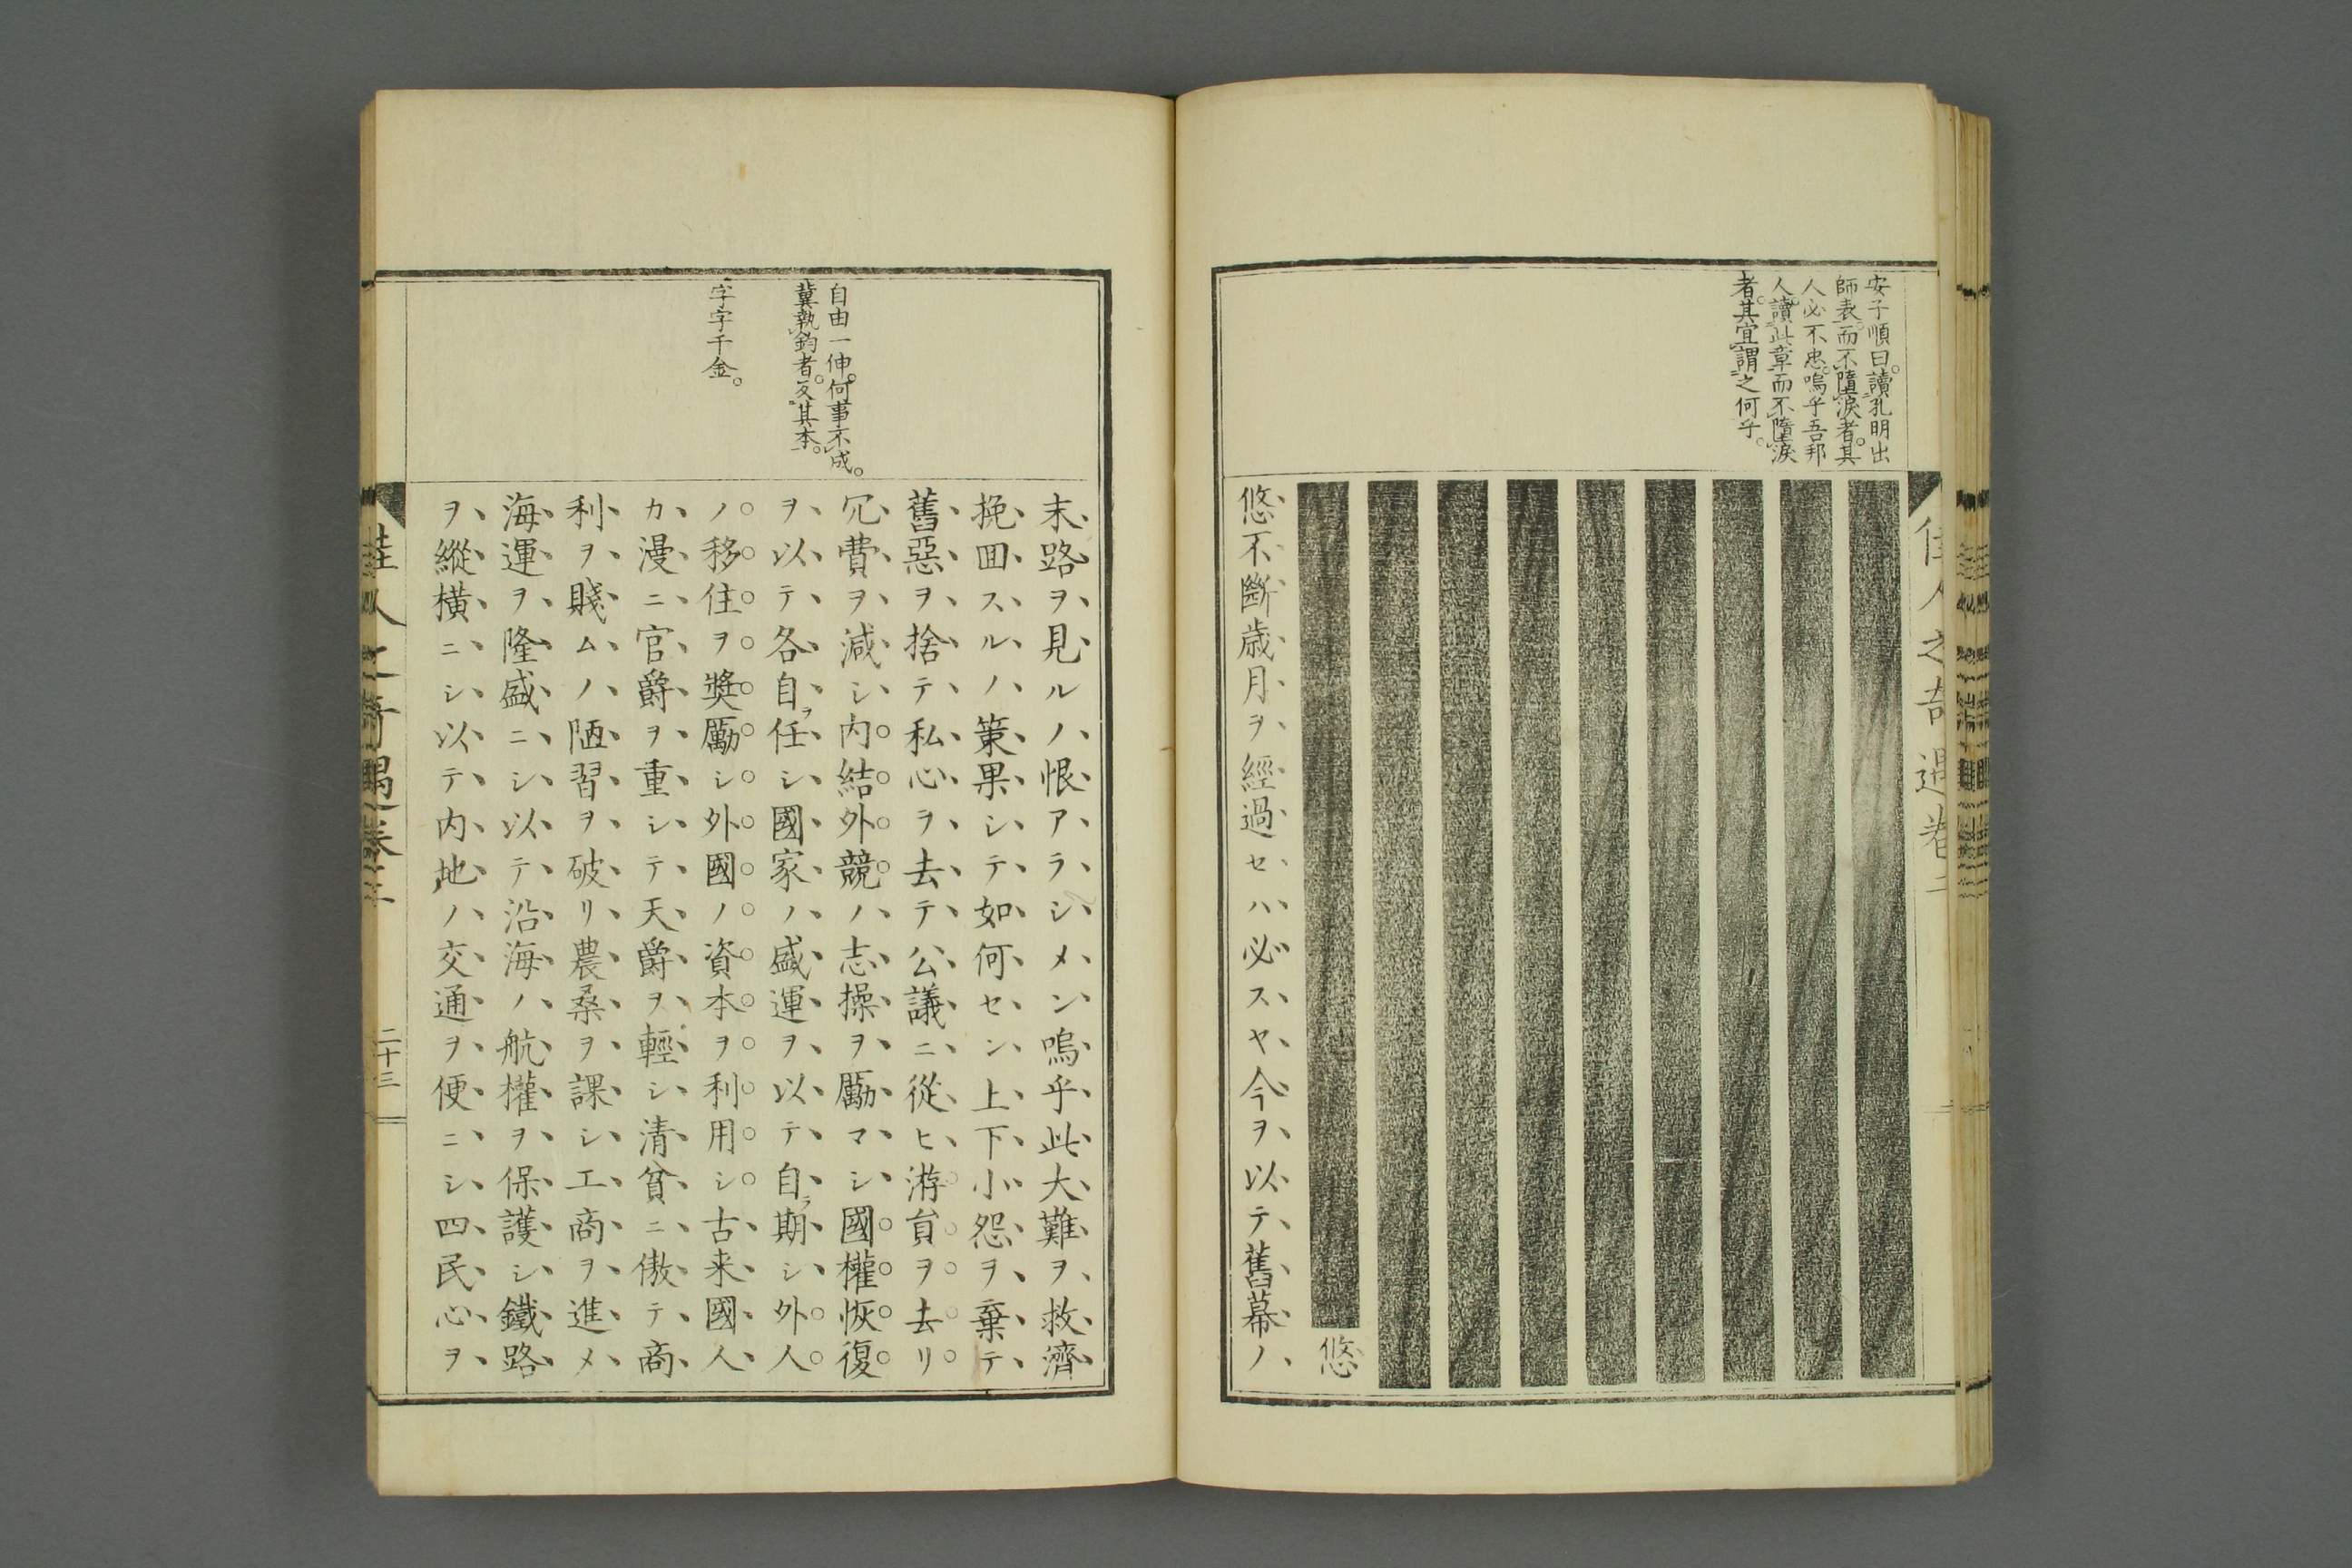 佳人之奇遇卷二
安子順曰。讀孔明出
師表。而不墮淚者。其
人必不忠。嗚乎吾邦
人。讀此章而不墮淚
者。其宜謂之何乎。
悠
悠不斷歳月ヲ經過セハ必スヤ今ヲ以テ舊幕ノ
自由一伸。何事不成。
冀執鈞者。反其本。
字字千金。
末路ヲ見ルノ恨アラシメン嗚乎此大難ヲ救濟
挽回スルノ策果シテ如何セン上下小怨ヲ棄テ
舊惡ヲ捨テ私心ヲ去テ公議ニ從ヒ游負ヲ去リ
冗費ヲ減シ内結外競ノ志操ヲ勵マシ國權恢復
ヲ以テ各自ラ任シ國家ノ盛運ヲ以テ自ラ期シ外人
ノ移住ヲ獎勵シ外國ノ資本ヲ利用シ古来國人
カ漫ニ官爵ヲ重シテ天爵ヲ輕シ清貧ニ傲テ商
利ヲ賤ムノ陋習ヲ破リ農桑ヲ課シ工商ヲ進メ
海運ヲ隆盛ニシ以テ沿海ノ航權ヲ保護シ鐵路
ヲ縱横ニシ以テ内地ノ交通ヲ便ニシ四民心ヲ
佳人之奇遇卷二 二十三